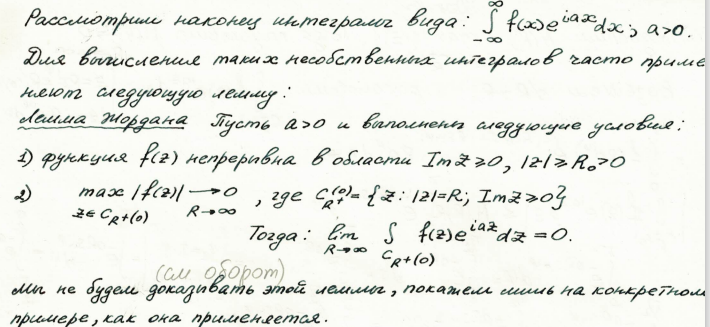 Рассмотрим наконец интегралы вида: ∫_{-∞}^{∞} f(x)e^{iax}dx; a>0.
Для вычисления таких несобственных интегралов часто приме
няют следующую лемму:
Лемма Жордана Пусть a>0 и выполнены следующие условия:
1) функция f(z) непрерывна в области Im z ≥ 0, |z| ≥ R₀ > 0
2) max_{z∈C_{R+}(0)} |f(z)| →_{R→∞} 0, где C_{R+}^{(0)} = {z: |z|=R; Im z ≥ 0}
Тогда: lim_{R→∞} ∫_{C_{R+}(0)} f(z)e^{iaz}dz = 0.
(см оборот)
Мы не будем доказывать этой леммы, покажем лишь на конкретном
примере, как она применяется.